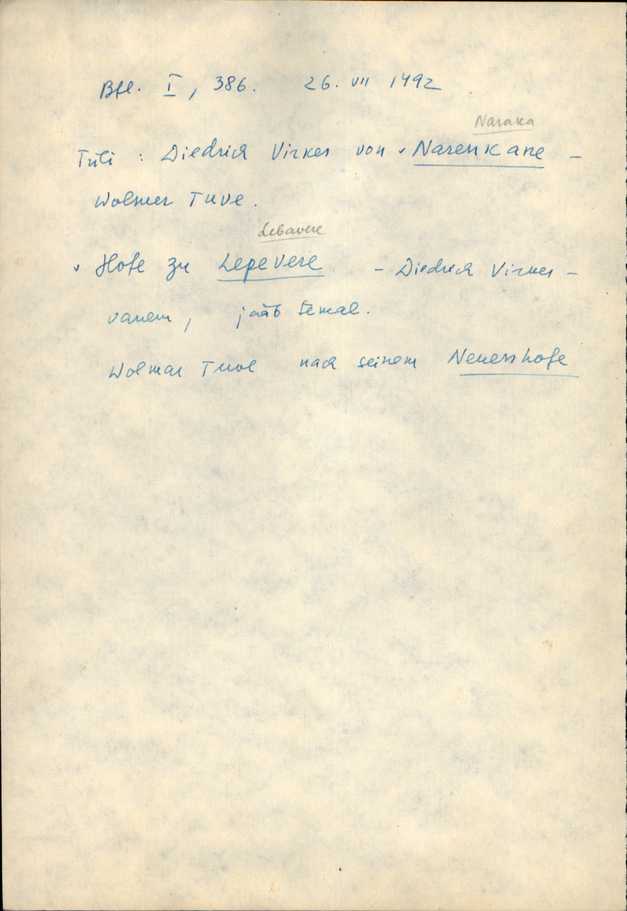 Bfl. I, 386. 26. VII 1492
Naraka
Tüli : Diedrich Virkes von Narenkane –
Wolmer Tuve.
Lebavere
Hofe zu Lepevere – Diedrich Virkes –
vanem, jääb temal.
Wolmar Tuve nach seinem Neuenhofe